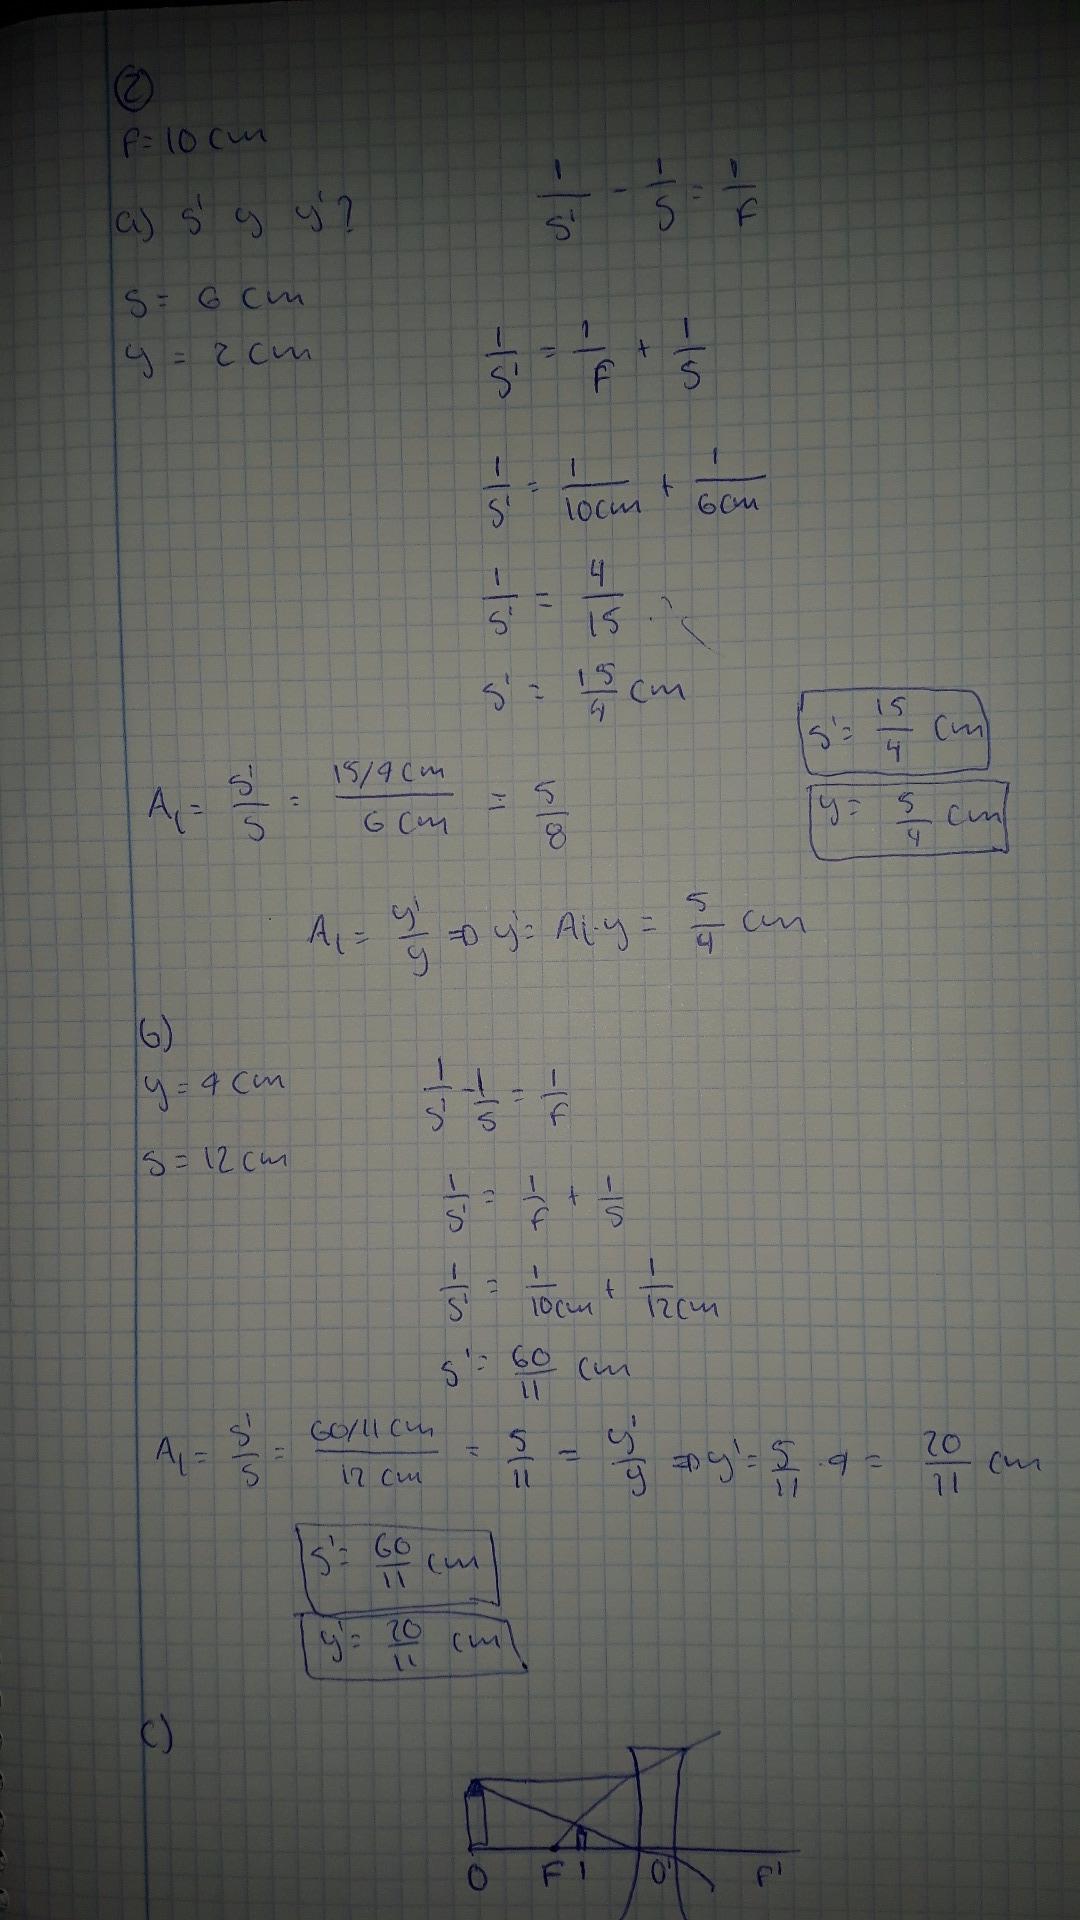 ②
F=10 cm
a) s' y y'?
1/s' - 1/s = 1/F
s= 6 cm
y = 2 cm
1/s' = 1/F + 1/s
1/s' = 1/10cm + 1/6cm
1/s' = 4/15
s' = 15/4 cm
s'= 15/4 cm
y= 5/4 cm
AL= s'/s = 15/4cm/6cm = 5/8
AL= y'/y ⇒ y'= AL·y = 5/4 cm
b)
y=4cm
1/s' - 1/s = 1/F
s=12cm
1/s' = 1/F + 1/s
1/s' = 1/10cm + 1/12cm
s'= 60/11 cm
AL= s'/s = 60/11cm/12cm = 5/11 = y'/y ⇒ y'= 5/11 · 4 = 20/11 cm
s'= 60/11 cm
y'= 20/11 cm
c)
O F I O' F'